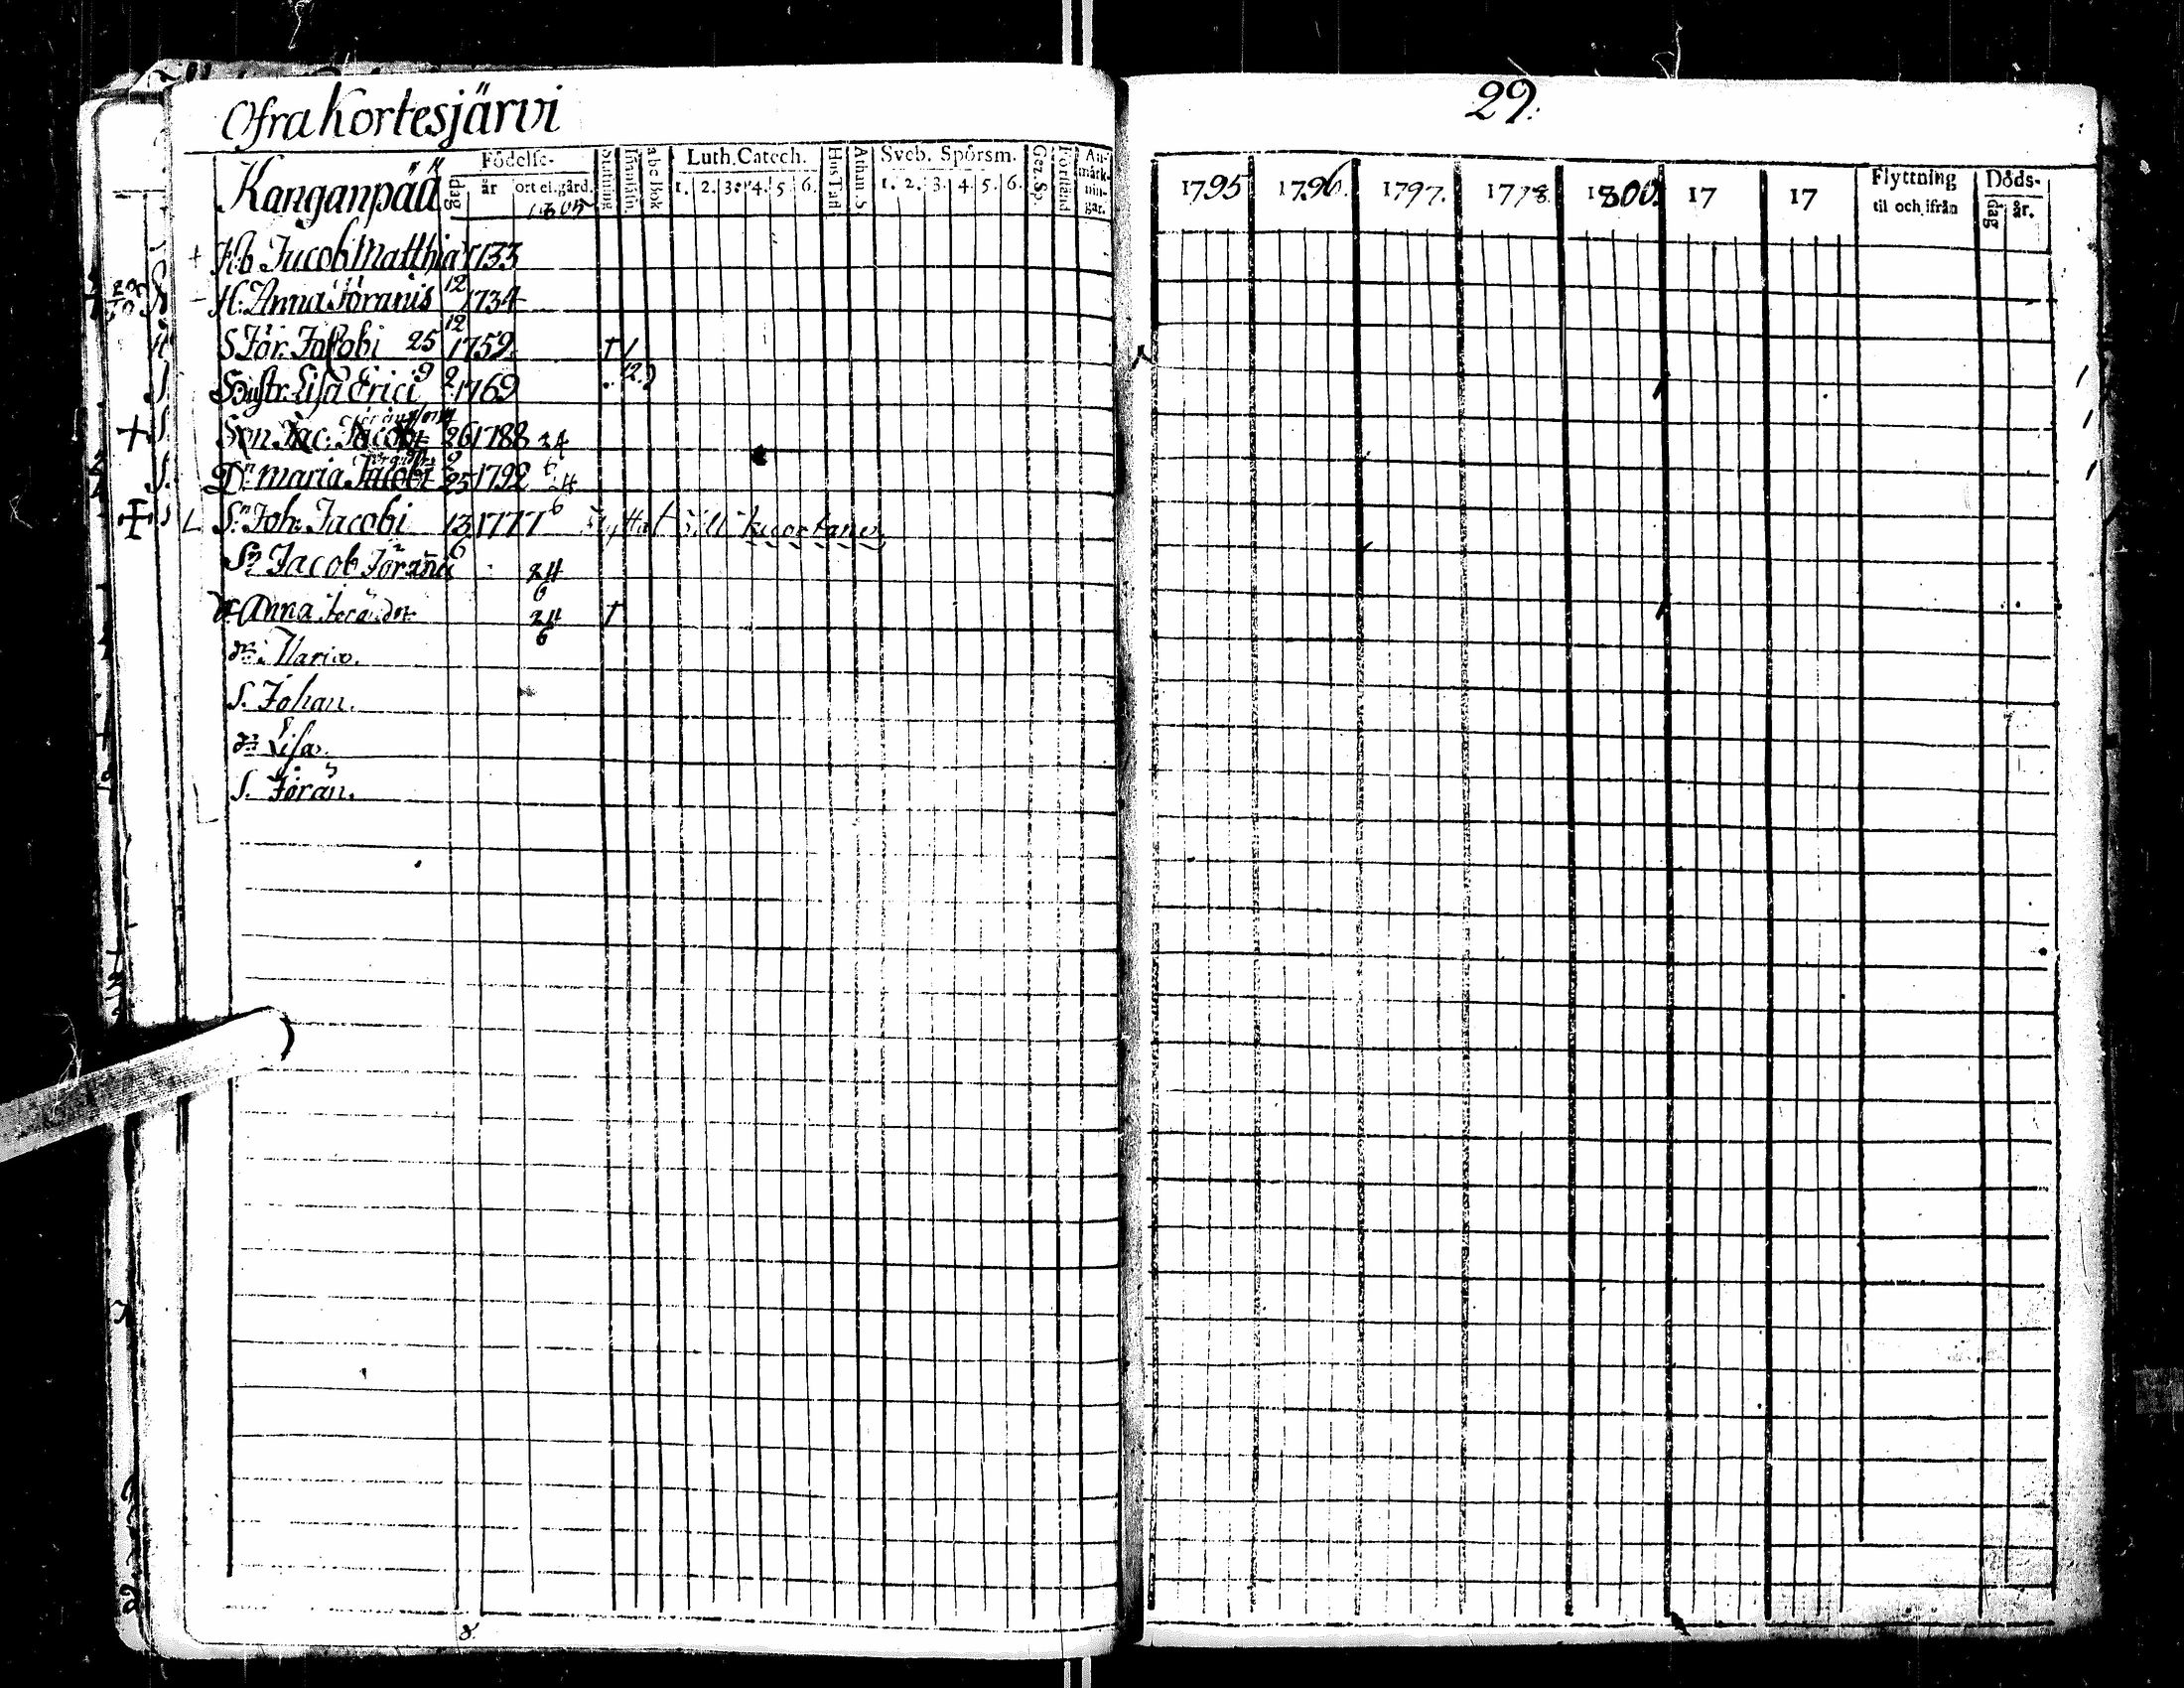 Ofra Kortesjärvi
29.
Kanganpää
Födelse-
dag år ort el. gård.
1805
abc Bok
Luth. Catech.
1. 2. 3. 4. 5. 6.
Hus Tafl.
Athan. S
Sveb. Spörsm.
1. 2. 3. 4. 5. 6.
Gez. Sp.
Förstånd
An-
märk-
nin-
gar.
1795 1796. 1797. 1798. 1800. 17 17
Flyttning
til och ifrån
Döds-
dag år.
Hb Jacob Matthiæ 1733
H. Anna Jöranis 12 1734
S Jör. Jacobi 25 12 1759
Hustr. Lisa Erici 9 2 1769
Son Jac. 26 1788 24
Dr Maria Jacobi 25 9 1792 6 24
Sn Joh. Jacobi 13 1777 6 flyttat till kuortane
Sn Jacob Jörani 6 24
6
dr Anna 24
6
dr Maria.
S. Johan.
dr Lisa.
S. Jöran.